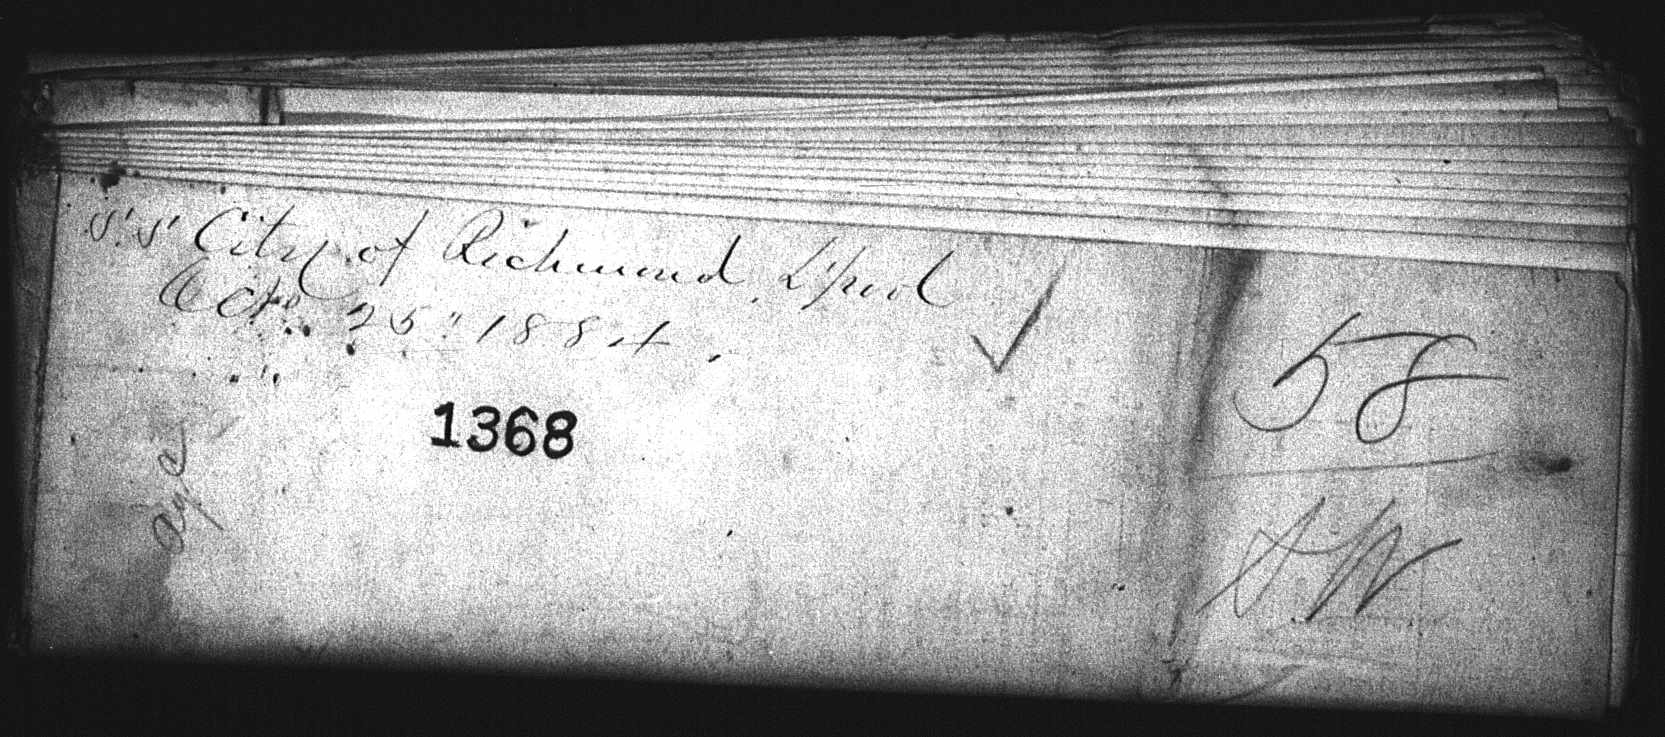 S.S City of Richmond, L'pool
Octr. 25" 1884.
1368
58